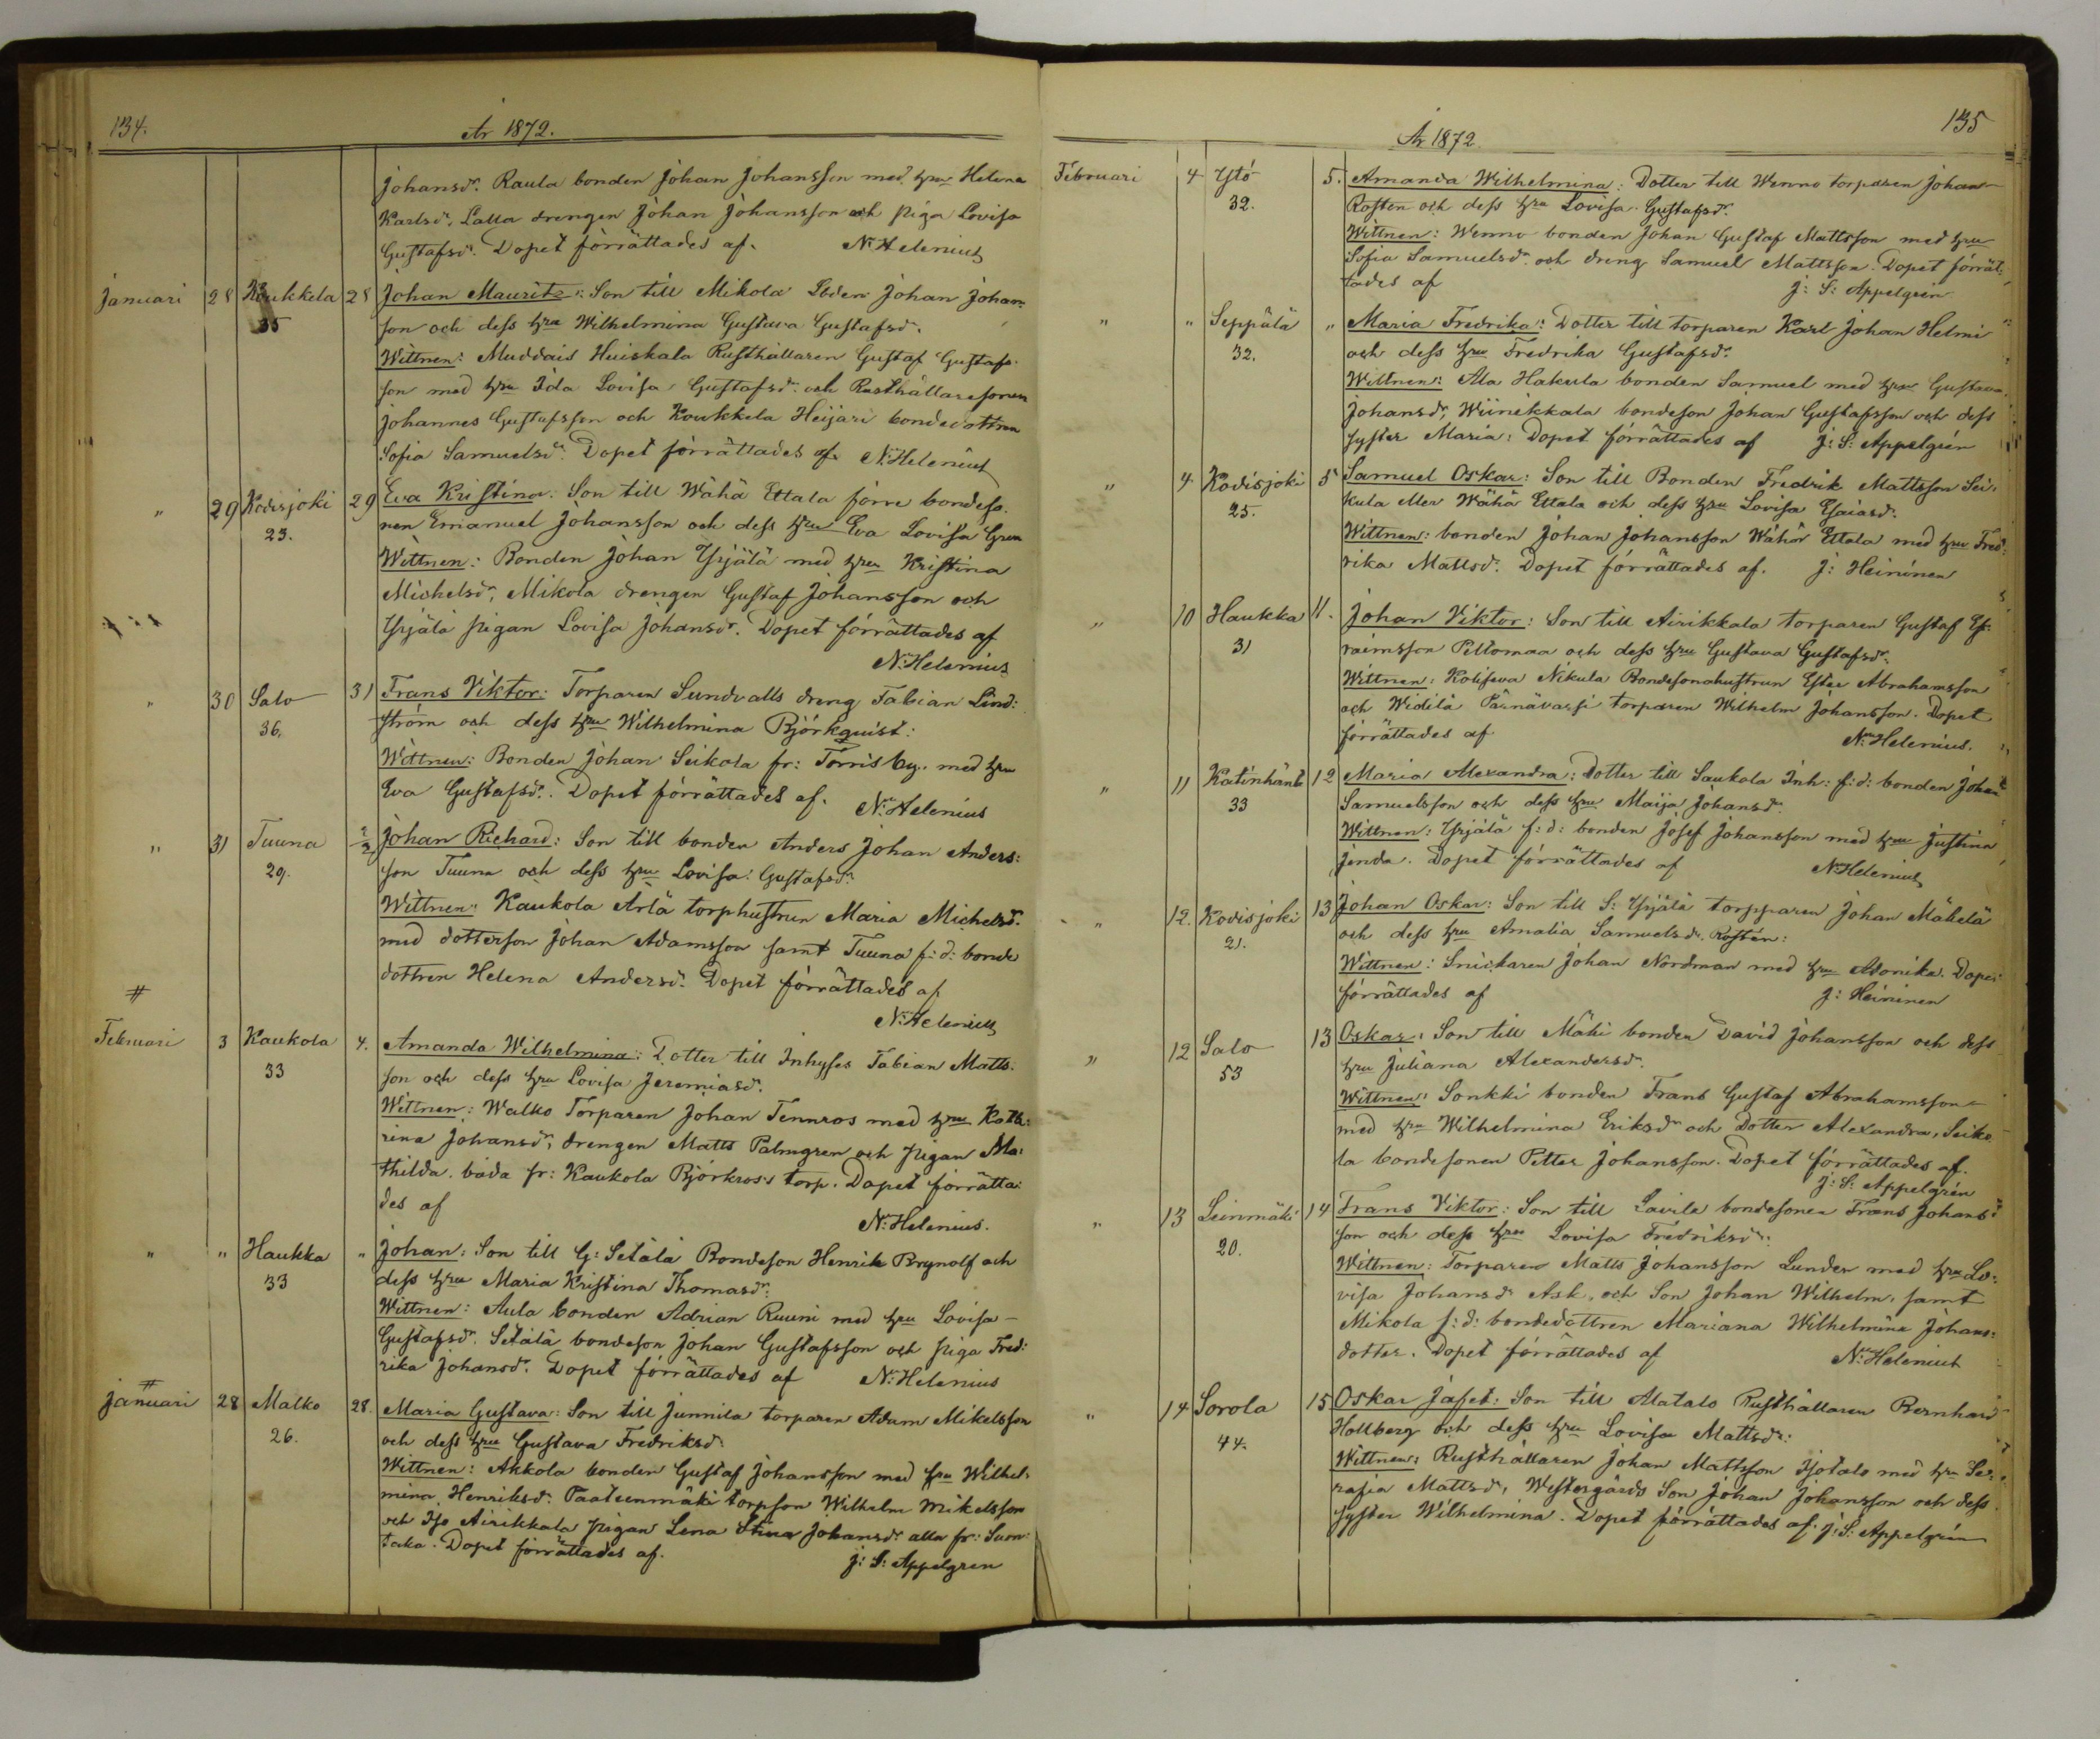 134.
År 1872.
Johansdr. Raula bonden Johan Johansson med hru Helena
Karlsdr, Lalla drengen Johan Johansson och piga Lovisa
Gustafsdr. Dopet förrättades af. N. Helenius
Januari 28 Koukkela 28 Johan Mauritz: Son till Mikola Johan Johan-
35 son och dess hru Wilhelmina Gustava Gustafsdr.
Wittnen: Muddais Huiskala Rusthållaren Gustaf Gustafs-
son med hru Ida Lovisa Gustafsdr. och Rusthållaresonen
Johannes Gustafsson och Koukkela Heijari bondedottren
Sofia Samuelsdr. Dopet förrättades af N. Helenius
" 29 Kodisjoki 29 Eva Kristina: Son till Wähä Ettala förre bondeso-
23. nen Emanuel Johansson och dess hru Eva Lovisa
Wittnen: Bonden Johan Yrjälä med hru Kristina
Michelsdr, Mikola drengen Gustaf Johansson och
Yrjälä pigan Lovisa Johansdr. Dopet förrättades af
N. Helenius
" 30 Salo 31 Frans Viktor: Torparen Sundvalls dreng Fabian Lind:
36. ström och dess hru Wilhelmina Björkquist:
Wittnen: Bonden Johan Seikola fr: Torris by. med hru
Eva Gustafsdr. Dopet förrättades af. N. Helenius
" 31 Tuuna 1/2 Johan Richard: Son till bonden Anders Johan Anders:
29. son Tuuna och dess hru Lovisa Gustafsdr.
Wittnen: Kaukola Arlä torphustrun Maria Michelsdr.
med dotterson Johan Adamsson samt Tuuna f: d: bonde
dottren Helena Andersdr. Dopet förrättades af
N. Helenius
#
Februari 3 Kaukola 4. Amanda Wilhelmina: Dotter till Inhyses Fabian Matts-
33 son och dess hru Lovisa Jeremiasdr.
Wittnen: Walko Torparen Johan Tennros med hru Katha:
rina Johansdr, drengen Matts Palmgren och pigan Ma:
thilda. båda fr: Kaukola Björkross torp. Dopet förrätta:
des af N. Helenius.
" " Haukka " Johan: Son till G: Setälä Bondeson Henrik Brynolf och
33 dess hru Maria Kristina Thomasdr.
Wittnen: Aula bonden Adrian Ruuni med hru Lovisa
Gustafsdr. Setälä bondeson Johan Gustafsson och piga Fred:
rika Johansdr. Dopet förrättades af N. Helenius
#
Januari 28 Malko 28. Maria Gustava: Son till Junnila torparen Adam Mikelsson
26. och dess hru Gustava Fredriksdr.
Wittnen: Akkola bonden Gustaf Johansson med hru Wilhel-
mina Henriksdr. Paateenmäki torpson Wilhelm Mikelsson
och Iso Airikkala pigan Lena Stina Johansdr alla fr: Suon-
taka. Dopet förrättades af. J: S: Appelgren
135
År 1872
Februari 4 Ytö 5. Amanda Wilhelmina: Dotter till Wenno torparen Johan
32. Rosten och dess hru Lovisa Gustafsdr.
Wittnen: Wenno bonden Johan Gustaf Mattsson med hru
Sofia Samuelsdr. och dreng Samuel Mattsson. Dopet förrät-
tades af J: S: Appelgrén
" " Seppälä " Maria Fredrika: Dotter till torparen Karl Johan Helmi
32. och dess hru Fredrika Gustafsdr.
Wittnen: Ala Hakula bonden Samuel med hru Gustava
Johansdr, Wiinikkala bondeson Johan Gustafsson och dess
syster Maria: Dopet förrättades af J: S: Appelgrén
" 4 Kodisjoki 5 Samuel Oskar: Son till Bonden Fredrik Mattsson Sei-
25. kula eller Wähä Ettala och dess hru Lovisa Esaiasdr.
Wittnen: bonden Johan Johansson Wähä Ettala med hru Fred:
rika Mattsdr. Dopet förrättades af. J: Heininen
" 10 Haukka 11. Johan Viktor: Son till Airikkala torparen Gustaf Ef-
31 raimsson Peltomaa och dess hru Gustava Gustafsdr.
Wittnen: Nikula Bondesonahustrun Ester Abrahamsson
och Widilä Pärnävarsi torparen Wilhelm Johansson. Dopet
förrättades af N. Helenius.
" 11 Katinhäntä 12 Maria Alexandra: Dotter till Saukola Inh: f: d: bonden Johan
33 Samuelsson och dess hru Maija Johansdr.
Wittnen: Yrjälä f: d: bonden Josef Johansson med hru Justina
Jinda. Dopet förrättades af N. Helenius
" 12. Kodisjoki 13 Johan Oskar: Son till S: Yrjälä torpparen Johan Mäkelä
21. och dess hru Amalia Samuelsdr. Rostén:
Wittnen: Snickaren Johan Nordman med hru Adonika. Dopet
förrättades af J: Heininen
" 12 Salo 13 Oskar: Son till Mäki bonden David Johansson och dess
53 hru Juliana Alexandersdr.
Wittnen: Sonkki bonden Frans Gustaf Abrahamsson
med hru Wilhelmina Eriksdr och Dotter Alexandra, Seiko
la bondesonen Petter Johansson. Dopet förrättades af.
J: S: Appelgrén
" 13 Leinmäki 14 Frans Viktor: Son till Lavila bondesonen Frans Johans-
20. son och dess hru Lovisa Fredriksdr:
Wittnen: Torparen Matts Johansson Lunden med hru Lo:
visa Johansdr Ask, och Son Johan Wilhelm, samt
Mikola f: d: bondedottren Mariana Wilhelmina Johans:
dotter. Dopet förrättades af N. Helenius
" 14 Sorola 15 Oskar Jafet: Son till Alatalo Rusthållaren Bernhard
44. Hollberg och dess hru Lovisa Mattsdr:
Wittnen: Rusthållaren Johan Mattsson Isotalo med hru Se-
rafia Mattsdr, Westergårds Son Johan Johansson och dess
syster Wilhelmina. Dopet förrättades af. J: S: Appelgrén